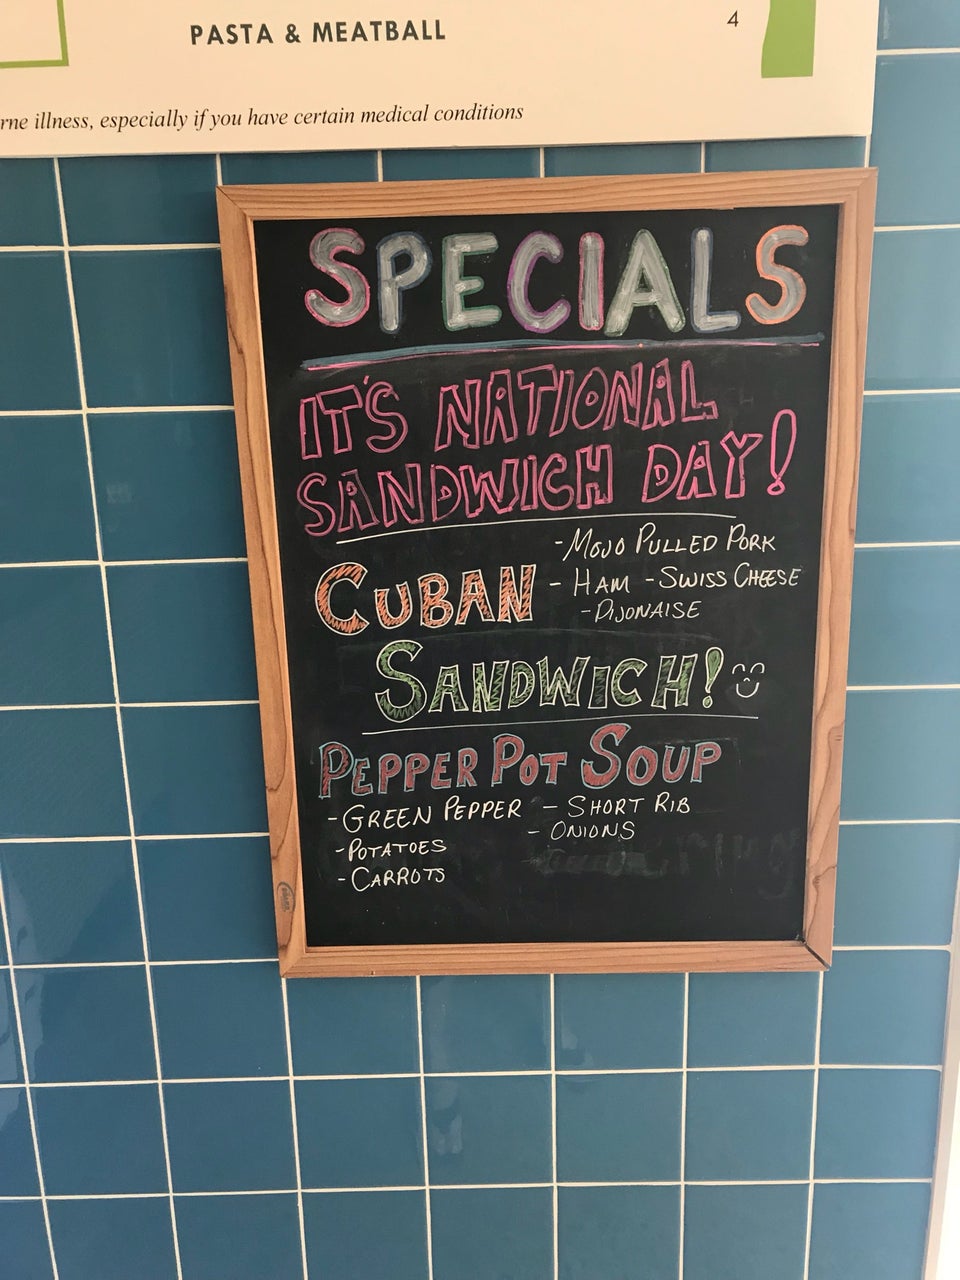 PASTA & MEATBALL 4
rne illness, especially if you have certain medical conditions
SPECIALS
IT'S NATIONAL
SANDWICH DAY!
CUBAN
- MOJO PULLED PORK
- HAM - SWISS CHEESE
- DIJONAISE
SANDWICH!
PEPPER POT SOUP
- GREEN PEPPER - SHORT RIB
- POTATOES - ONIONS
- CARROTS